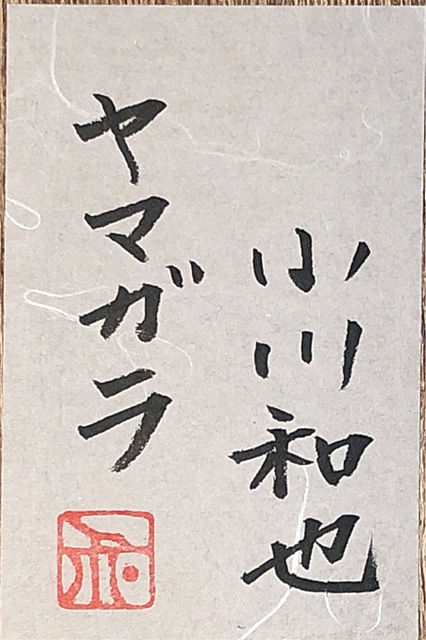 小川和也
ヤマガラ